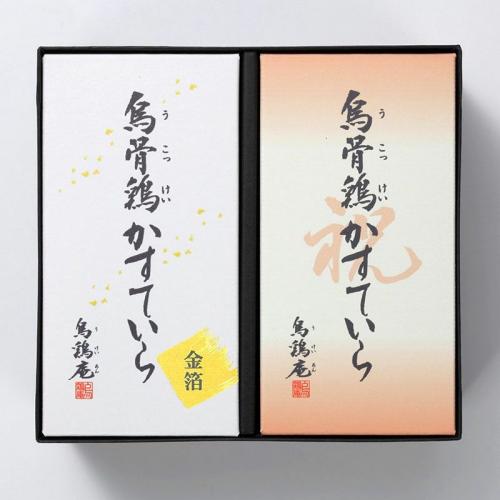 烏骨鶏かすていら
う
こっ
けい
烏鶏庵
う
けい
あん
金箔
祝
烏骨鶏かすていら
う
こっ
けい
烏鶏庵
う
けい
あん